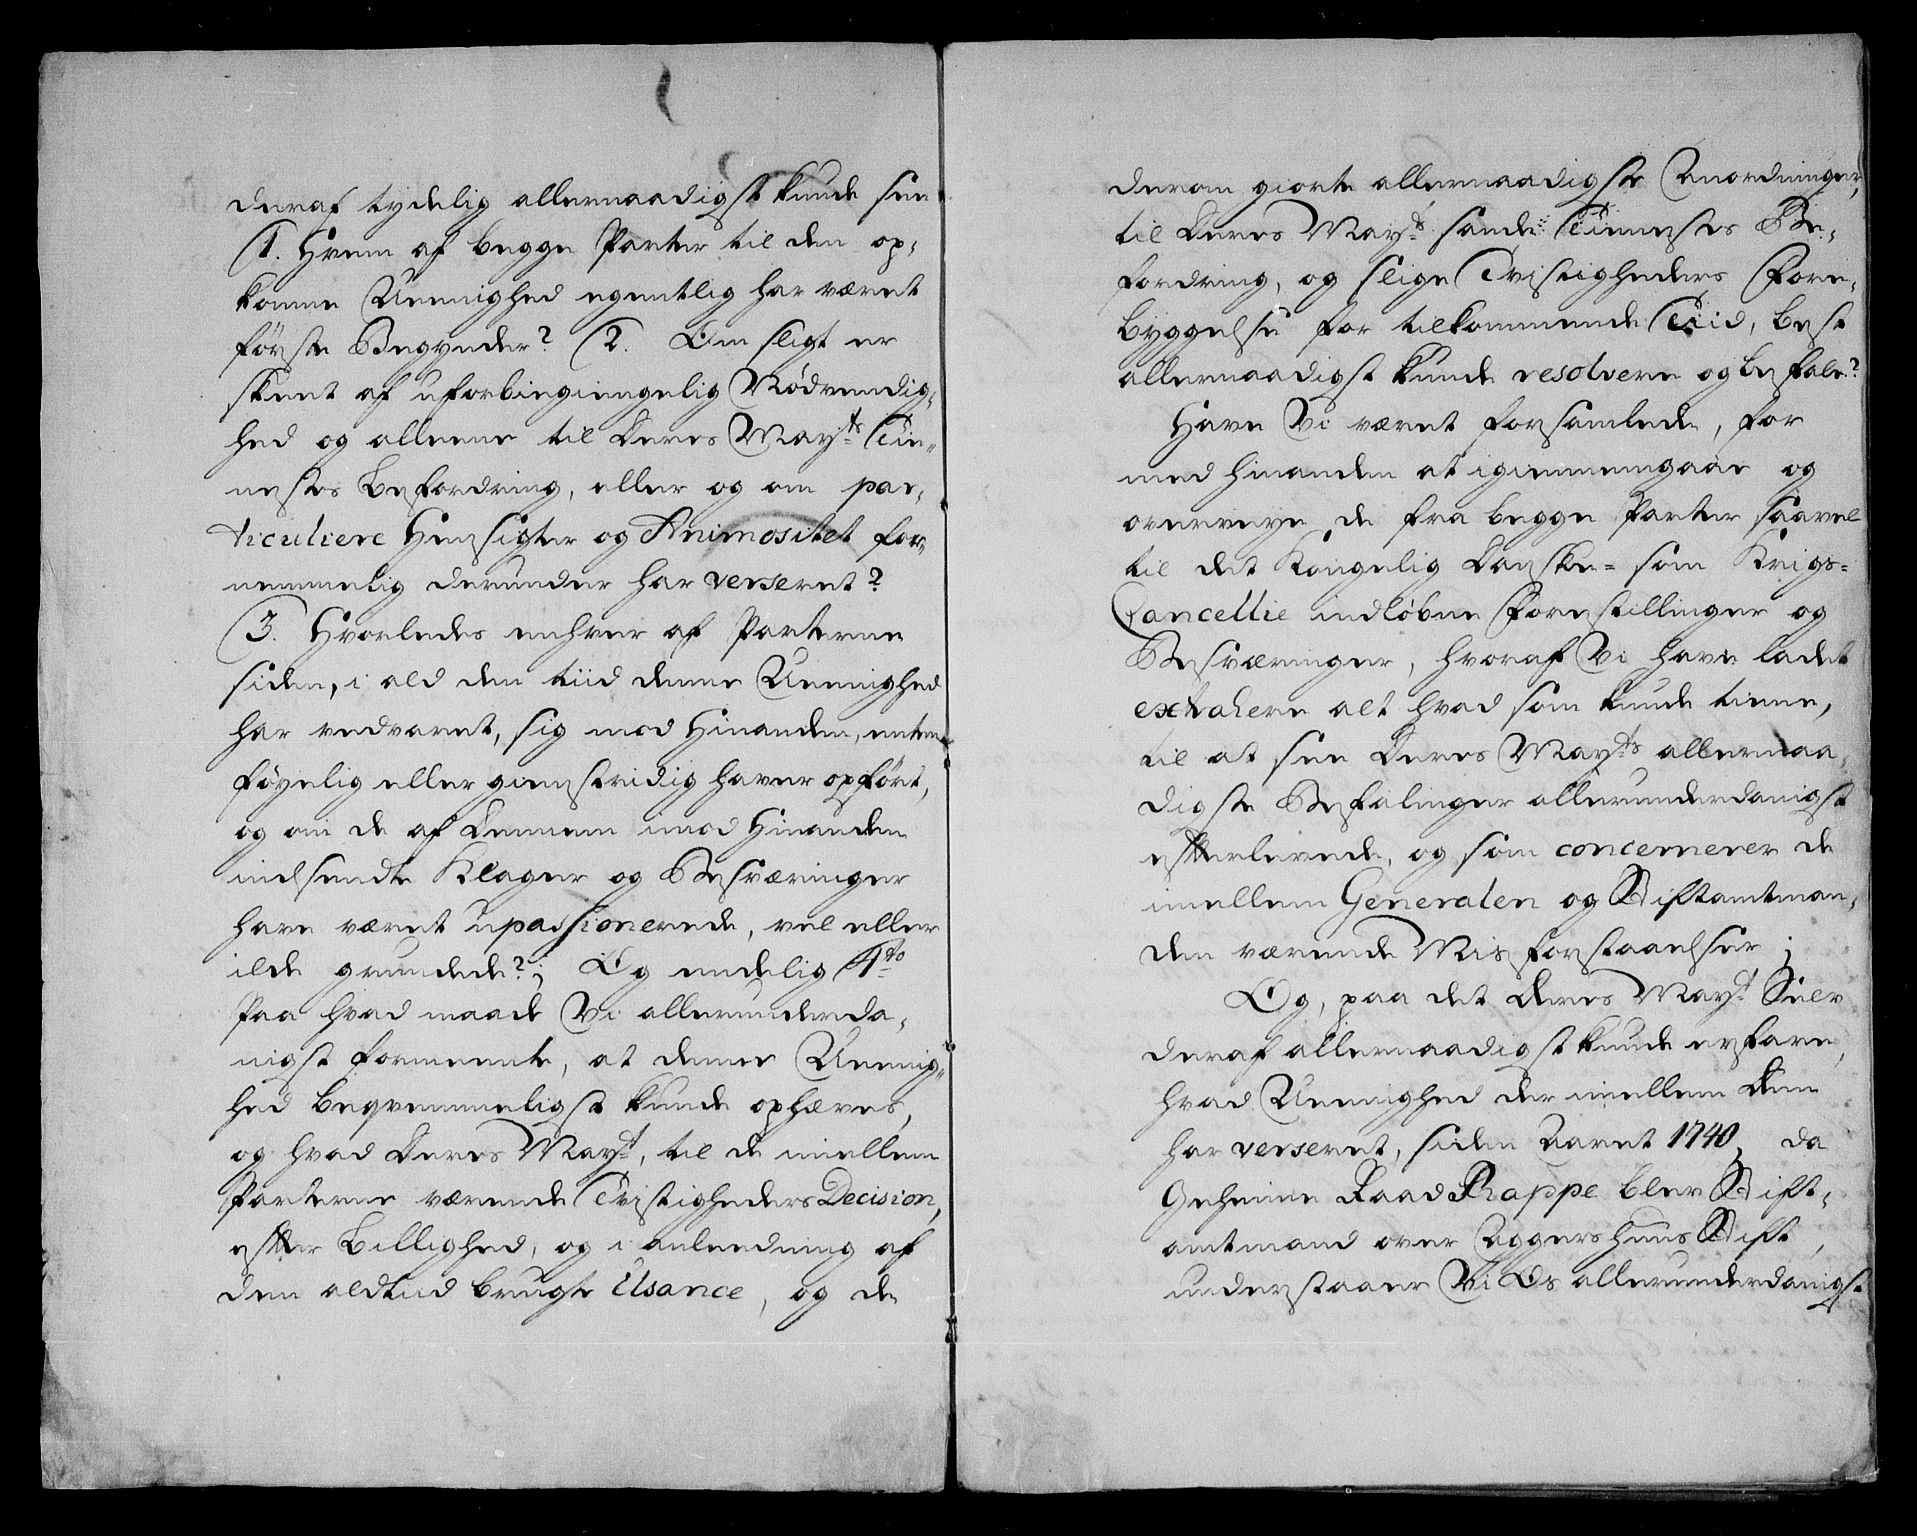 deraf tydelig allernaadigst kunde see
(1. Hvem af begge Parter til den op-
komne Ueenighed egentlig har været
første Begynder? (2. Om sligt er
skeet af uforbigiengelig Nødvendig-
hed og alleene til Deres Mayts Tie-
nestes Befordring, eller og om par-
ticuliere Hensigter og Animositet for-
nemmelig derunder har verseret?
(3. Hvorledes enhver af Parterne
siden, i ald den tiid denne Ueenighed
har vedvaret, sig mod Hinanden, enten
føyelig eller gienstridig haver opført,
og om de af Dennem imod Hinanden
indsendte Klager og Besværinger
have været upassionerede, vel eller
ilde grundede?; Og endelig 4to
Paa hvad maade Vi allerunderda-
nigst formeente, at denne Ueenig-
hed beqvemmeligst kunde ophæves,
og hvad Deres Mayt, til de imellem
Parterne værende Tvistigheders Decision,
efter Billighed, og i anleedning af
den aldtiid brugte Usance, og de
derom giorte allernaadigste Anordninger,
til Deres Mayts sande Tienestes Be-
fordring, og slige Tvistigheders Fore-
byggelse for tilkommende Tiid, best
allernaadigst kunde resolvere og befale?
Have Vi været forsamlede, for
med hinanden at igiennemgaae og
overveye de fra begge Parter saavel
til det Kongelig Danske- som Krigs-
Cancellie indløbne Forestillinger og
Besværinger, hvoraf Vi have ladet
extrahere alt hvad som kunde tiene,
til at see Deres Mayts allernaa-
digste Befalinger allerunderdanigst
efterlevede, og som concernerer de
imellem Generalen og Stiftamtman-
den værende Misforstaaelser;
Og, paa det Deres Mayt Selv
deraf allernaadigst kunde erfare,
hvad Ueenighed der imellem Dem
har verseret, siden Aaret 1740, da
Geheime Raad Rappe blev Stift-
amtmand over Aggershuus Stift,
understaaer Vi Os allerunderdanigst